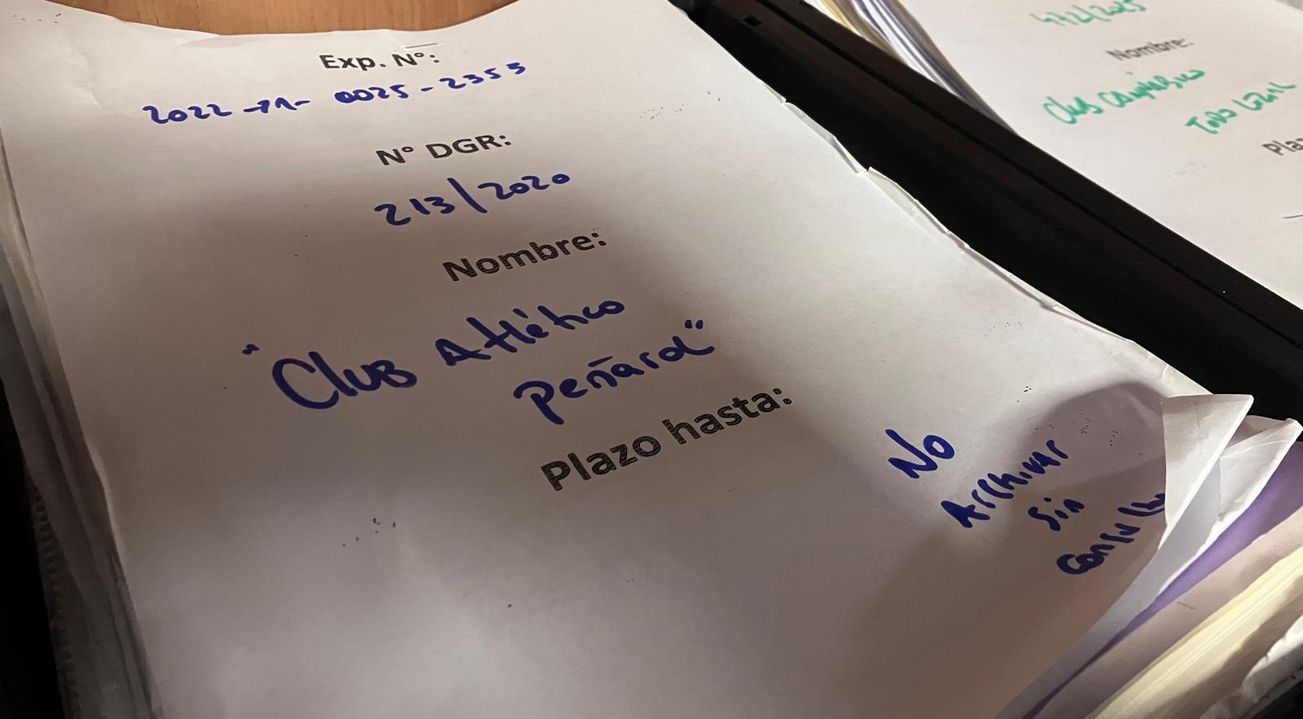 Exp. N°:
2022-11-0025-2353
N° DGR:
213/2020
Nombre:
"Club Atlético
Peñarol"
Plazo hasta:
No
Archivar
sin
Nombre:
Club